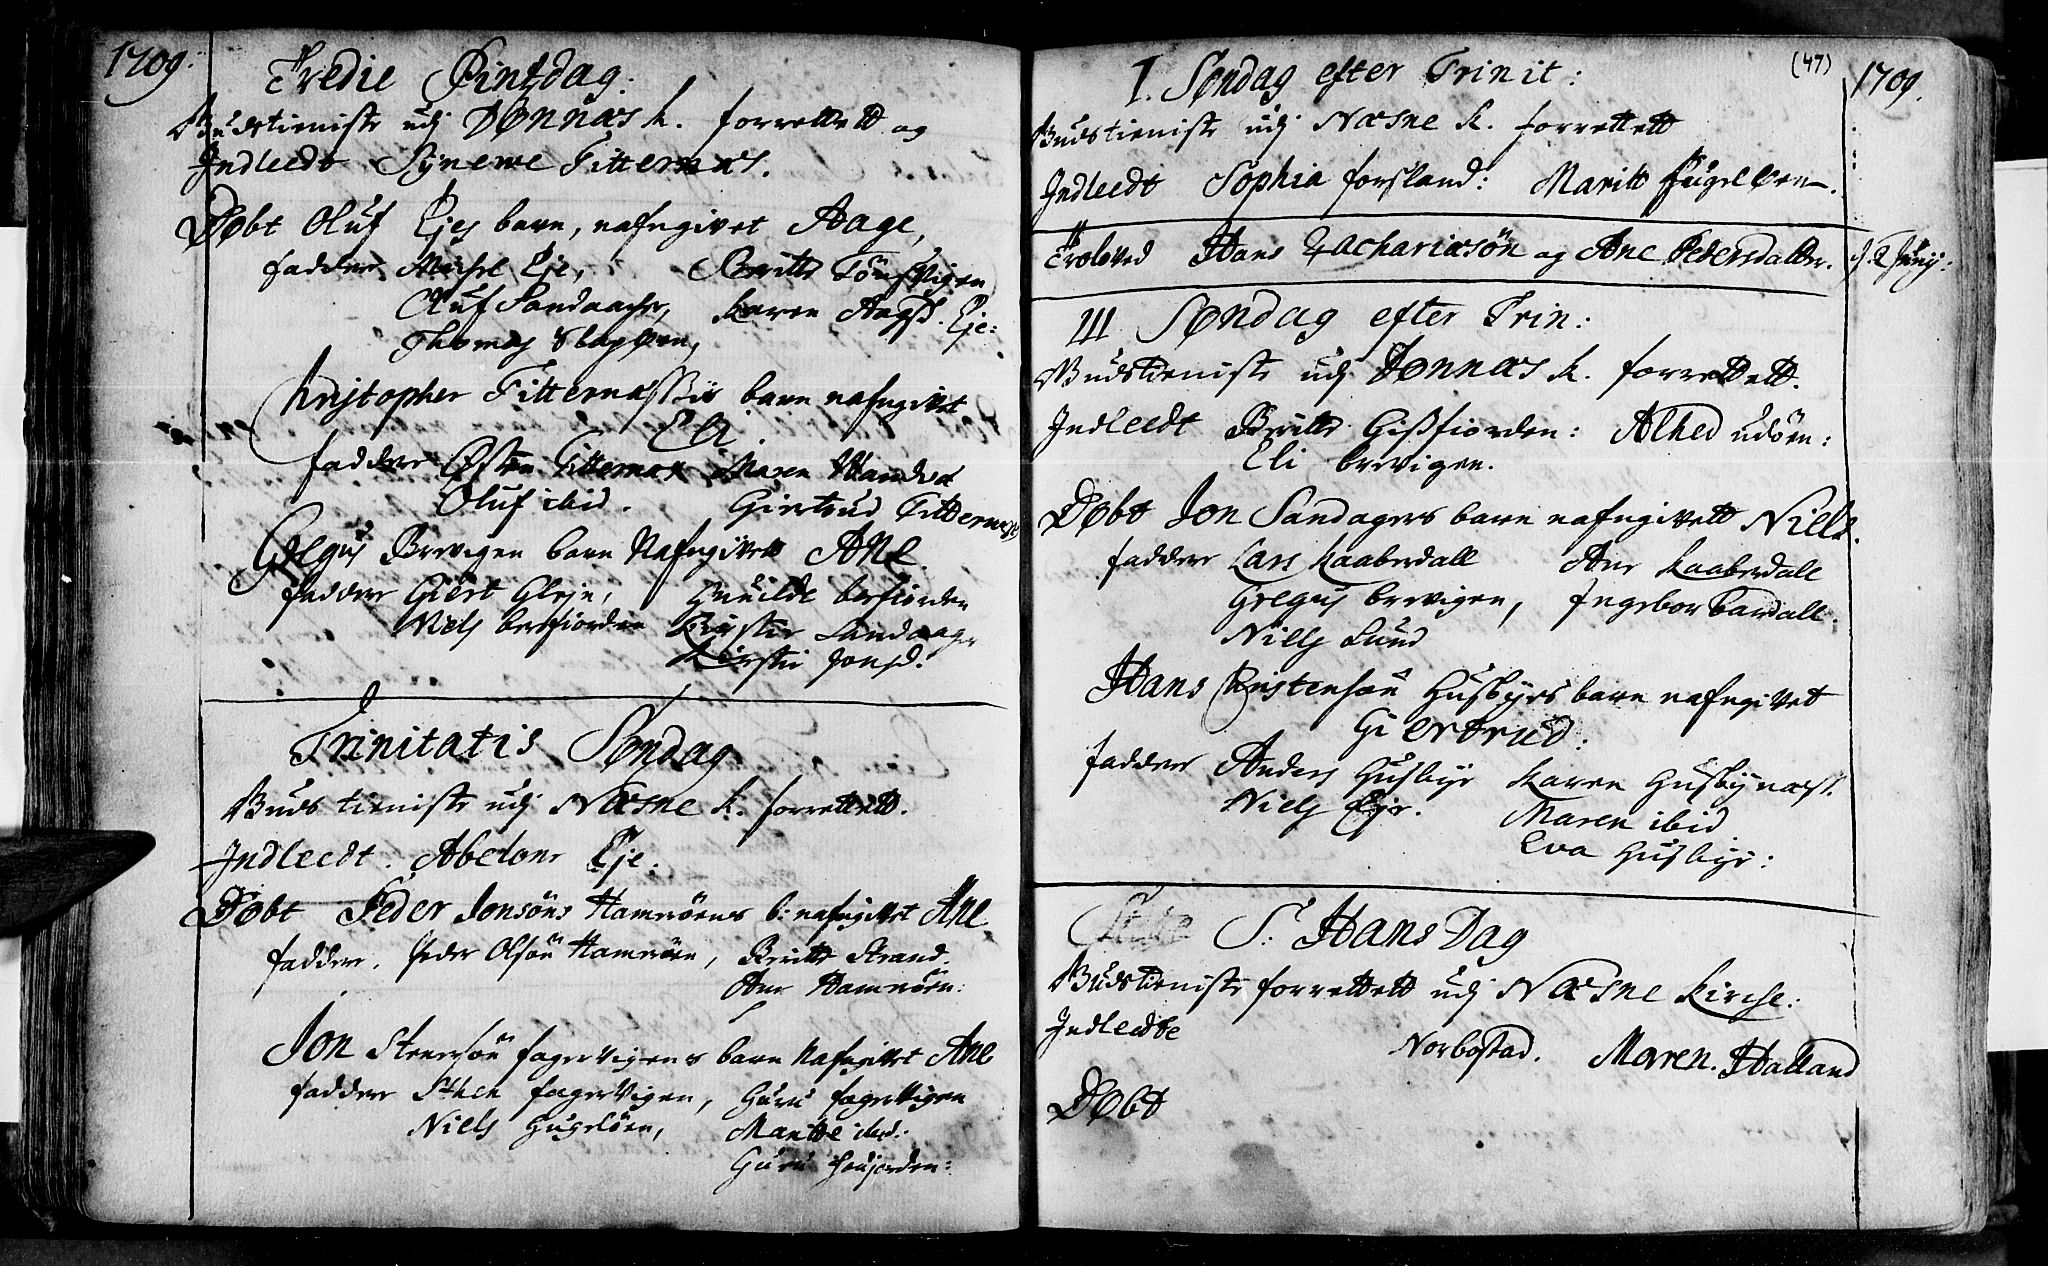 1709.
Tredie Pintzdag.
Gudstieniste udj Dönnæs k. forrettett og
Indleedt Synewe Titternæs.
Döbt Oluf Ejes barn, nafngivet Aage,
faddere Michel Eje, Beritte Tönsvigen
Oluf Sandaager, Karen Aagsd. Eje:
Thomas Slapøen,
Kristopher Titternæssis barn nafngivet
Eli.
faddere Østen Titternæs Maren Handnæs
Oluf ibid. Giertrud Titternæss
Gregus Brevigen barn Nafngivett Ane.
faddere Giert Gleje, Gunilde berfiorden
Niels berfiorden Kirstie Sandaager
Kirstie Jonsd.
Trinitatis Søndag
Gudstieniste udj Næsne k. forrettett.
Indleedt. Abelone Eje.
Döbt Peder Jonsöns Hamnöens b: nafngivet Ane
faddere. Peder Olsön Hamnöen, Beritte Strand.
Ane Hamnöen:
Jon Steensön fagervigens barn Nafngivet Ane
faddere Sthen fagervigen, Guru fagervigen
Niels Hugelöen, Maritte ibid:
Guru
(47)
1709.
I. Søndag efter Trinit:
Gudstieniste udj Næsne k. forrettett
Indleedt Sophia forsland: Maritt Hugelöen.
Troloved Hans Zachariasön og Ane Pedersdatter. d. 2 Junij:
III Søndag efter Trin:
Gudstieniste udj Dönnæs k. forrettett.
Indleedt Beritte Gißfiorden: Alhed udöen:
Eli brevigen.
Döbt Jon Sandagers barn nafngivett Niels.
faddere Lars Kaaberdall Ane Kaaberdall
Gregus brevigen, Ingebor bardall.
Niels Lund
Hans Kristensön Husbyes barn nafngivet
Giertrud.
faddere Anders Husbye Karen Husbynæs.
Niels Eje. Maren ibid.
Eva Husbye:
S: Hans Dag
Gudstieniste forrettett udj Næsne Kirche:
Indleedte Norbostad. Maren. Halland
Döbt